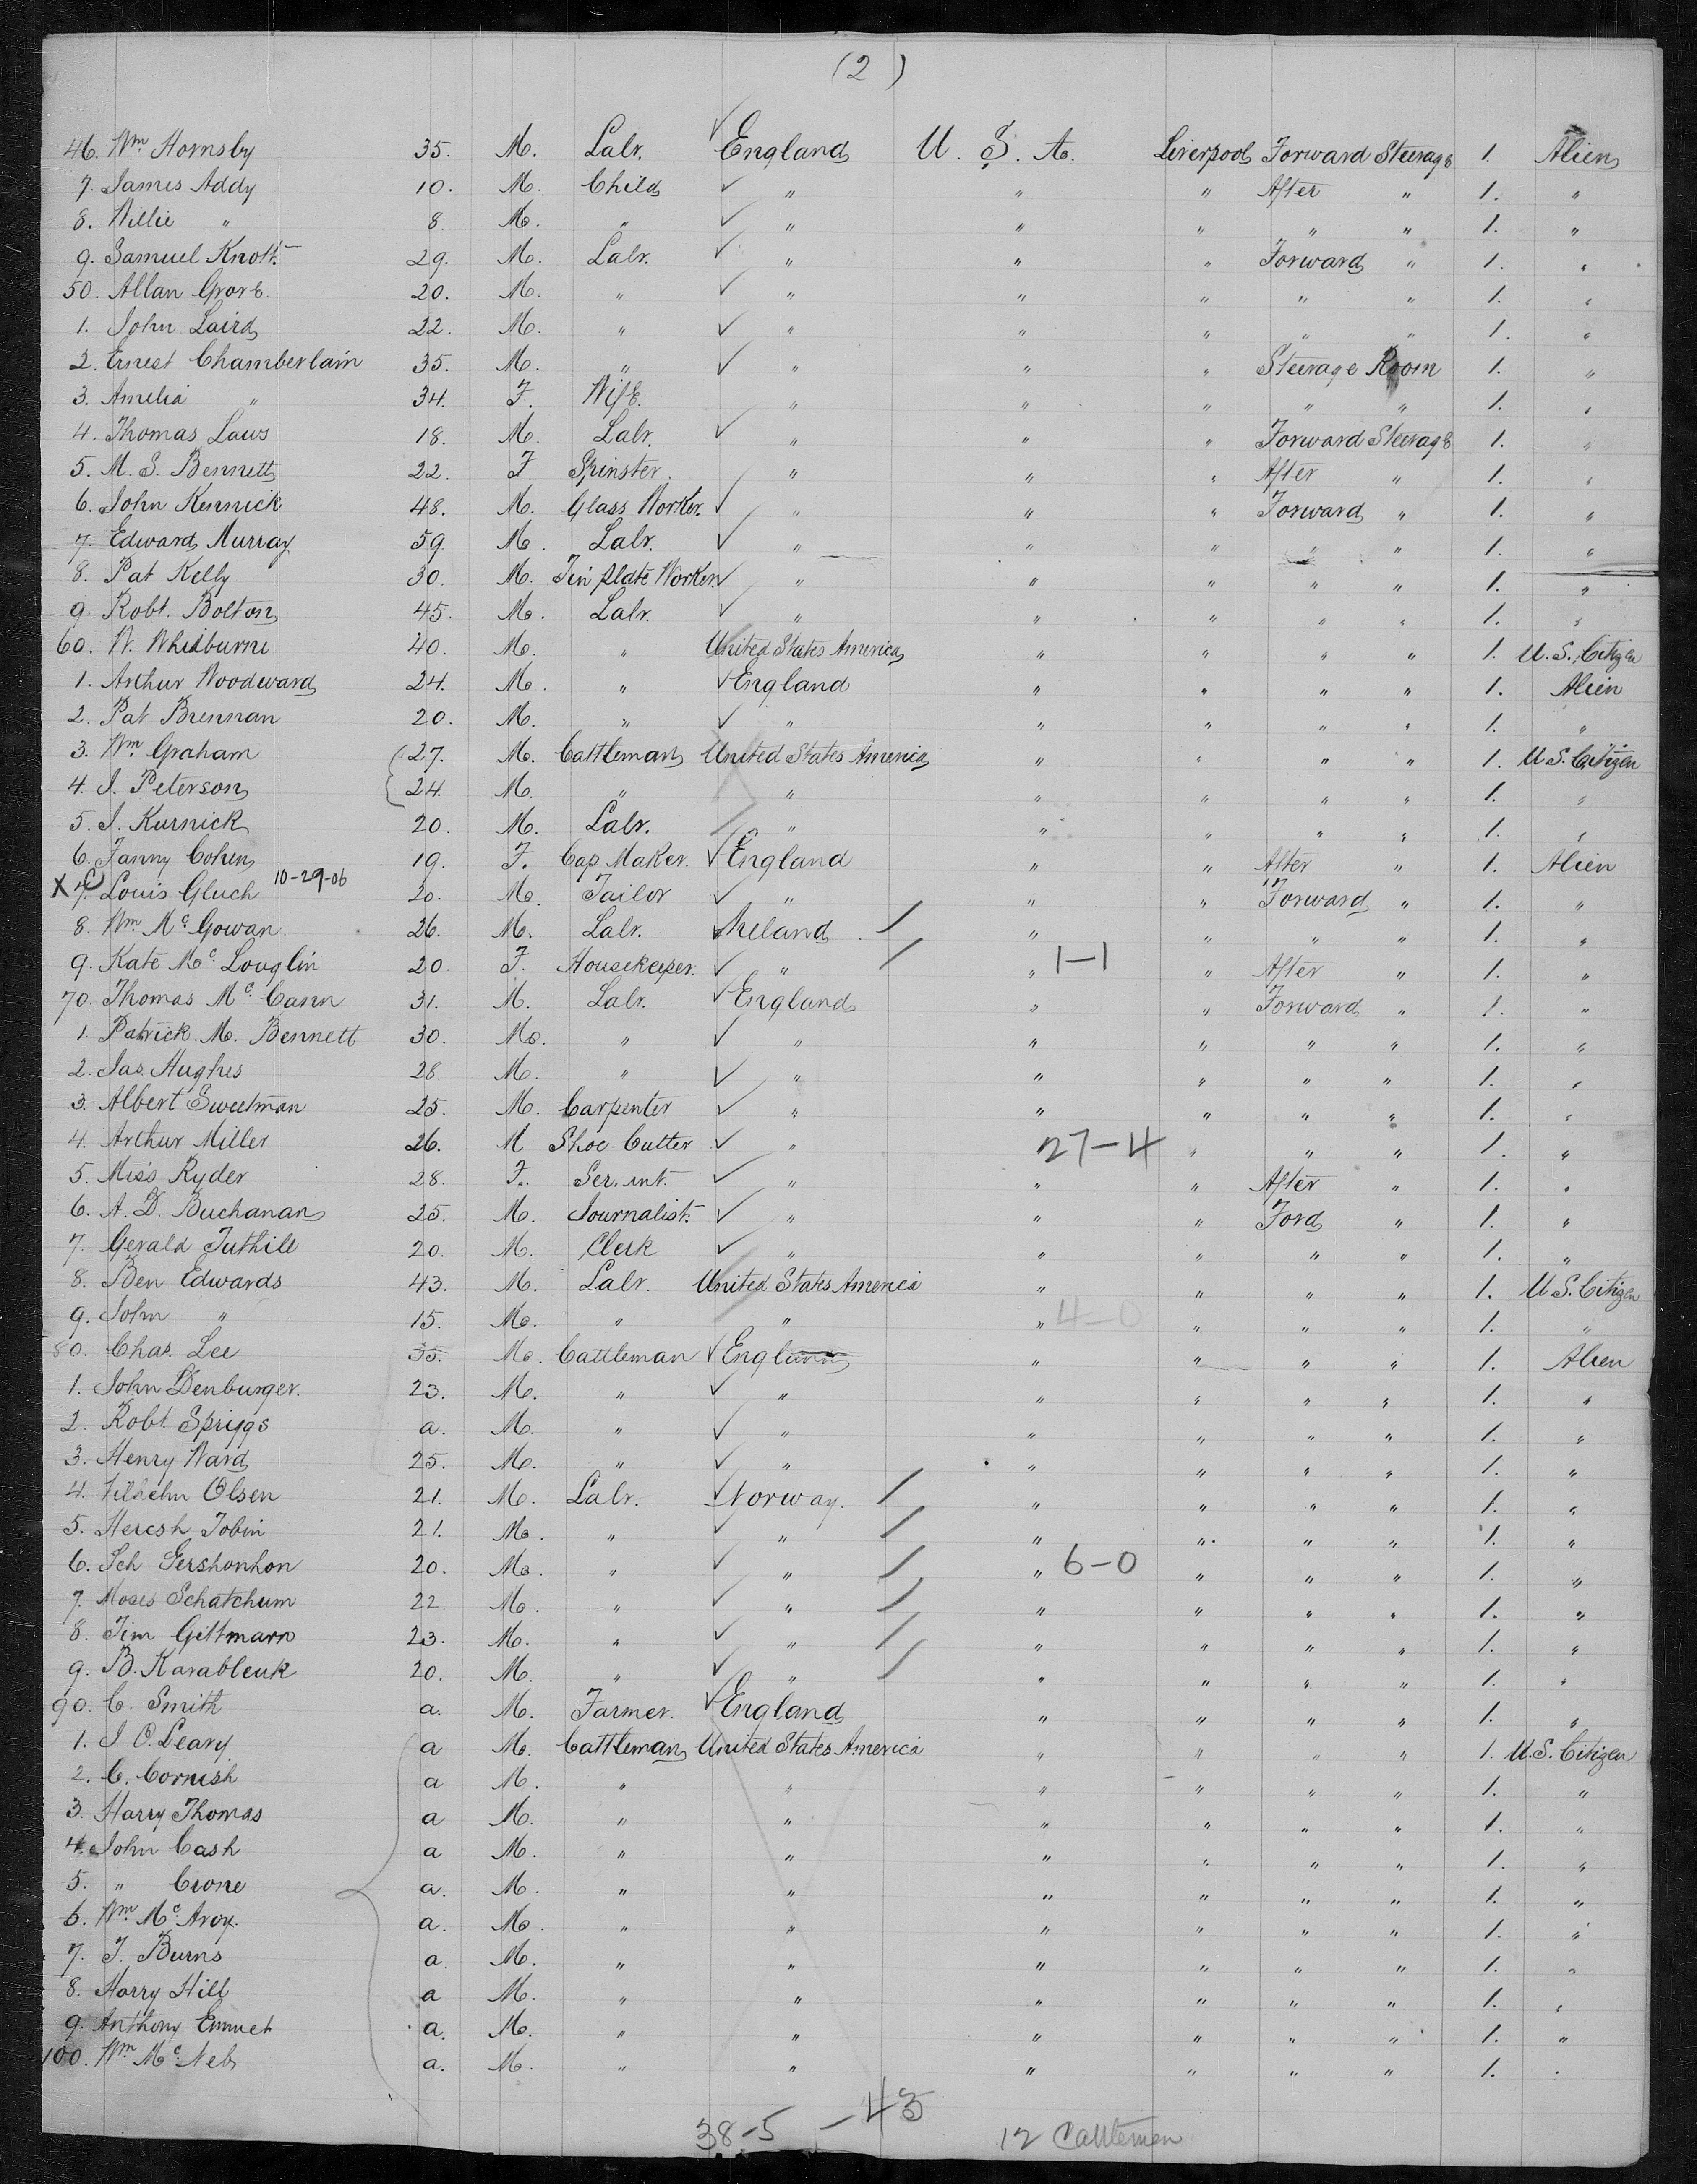 (2)
46. Wm Hornsby 35. M. Labr. ✓ England U. S. A. Liverpool Forward Steerage 1. Alien
7. James Addy 10. M. Child ✓ " " " After " 1. "
8. Willie " 8 M. " ✓ " " " " " 1. "
9. Samuel Knott. 29. M. Labr. ✓ " " " Forward " 1. "
50. Allan Grove. 20. M. " ✓ " " " " " 1. "
1. John Laird 22. M. " ✓ " " " " " 1. "
2. Ernest Chamberlain 35. M. " ✓ " " " Steerage Room 1. "
3. Amelia " 34. F. Wife. " " " " " 1. "
4. Thomas Laws 18. M. Labr. ✓ " " " Forward Steerage 1. "
5. M. S. Bennett 22. F Spinster. " " " After " 1. "
6. John Kennick 48. M. Glass Worker. ✓ " " " Forward " 1. "
7. Edward Murray 59. M. Labr. ✓ " " " " " 1. "
8. Pat Kelly 30. M. Tin plate Worker. ✓ " " " " " 1. "
9. Robt. Bolton 45. M. Labr. ✓ " " " " " 1. "
60. W. Whidburne 40. M. " United States America " " " " 1. U.S. Citizen
1. Arthur Woodward 24. M. " ✓ England " " " " 1. Alien
2. Pat Brennan 20. M. " ✓ " " " " " 1. "
3. Wm Graham 27. M. Cattleman United States America " " " " 1. U.S. Citizen
4. J. Peterson 24. M. " " " " " " 1. "
5. J. Kurnick 20. M. Labr. " " " " " 1. "
6. Fanny Cohen 19. F. Cap Maker. ✓ England " " After " 1. Alien
X 7. Louis Gluch 10-29-06 20. M. Tailor ✓ " " " Forward " 1. "
8. Wm. Mc Gowan. 26. M. Labr. ✓ Ireland / " " " " 1. "
9. Kate Mc Louglin 20. F. Housekeeper. ✓ " / " 1-1 " After " 1. "
70. Thomas Mc Cann 31. M. Labr. ✓ England " " Forward " 1. "
1. Patrick. M. Bennett 30. M. " ✓ " " " " " 1. "
2. Jas. Hughes 28. M. " ✓ " " " " " 1. "
3. Albert Sweetman 25. M. Carpenter ✓ " " " " " 1. "
4. Arthur Miller 26. M Shoe Cutter ✓ " 27-4 " " " 1. "
5. Miss Ryder 28. F. Servant. ✓ " " " After " 1. "
6. A. D. Buchanan 25. M. Journalist. ✓ " " " Ford " 1. "
7. Gerald Tuthill 20. M. Clerk ✓ " " " " " 1. "
8. Ben Edwards 43. M. Labr. United States America " " " " 1. U.S. Citizen
9. John " 15. M. " " " 4-0 " " " 1. "
80. Chas. Lee 35. M. Cattleman ✓ England " " " " 1. Alien
1. John Denburger. 23. M. " ✓ " " " " " 1. "
2. Robt. Spriggs a. M. " ✓ " " " " " 1. "
3. Henry Ward 25. M. " ✓ " " " " " 1. "
4. Olsen 21. M. Labr. ✓ Norway. / " " " " 1. "
5. Heresh Tobin 21. M. " ✓ " / " " " " 1. "
6. Sch Gershonhon 20. M. " ✓ " / " 6-0 " " " 1. "
7. Moses Schatchum 22 M. " ✓ " / " " " " 1. "
8. Tim Gittmann 23. M. " ✓ " / " " " " 1. "
9. B. Karableuk 20. M. " ✓ " / " " " " 1. "
90. C. Smith a. M. Farmer. ✓ England " " " " 1. "
1. J. O. Leary a M. Cattleman United States America " " " " 1. U.S. Citizen
2. C. Cornish a M. " " " " " " 1. "
3. Harry Thomas a M. " " " " " " 1. "
4. John Cash a M. " " " " " " 1. "
5. " Crone a. M. " " " " " " 1. "
6. Wm Mc Avoy. a. M. " " " " " " 1. "
7. T. Burns a. M. " " " " " " 1. "
8. Harry Hill a M. " " " " " " 1. "
9. Anthony Emmet a. M. " " " " " " 1. "
100. Wm. Mc Neb a. M. " " " " " " 1. "
38-5 - 43 12 Cattlemen